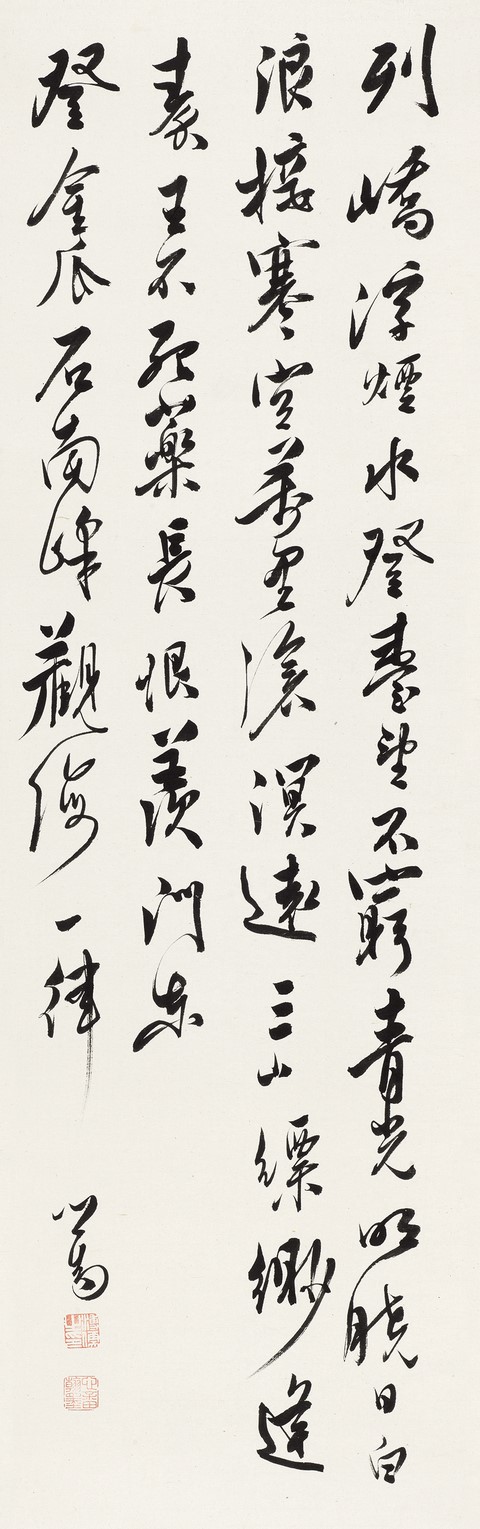 列嶠浮煙水登臺望不窮青光明曉日白
浪接寒空萬里滄溟遠三山縹緲逢
秦王不死藥長恨羨門東
登金瓜石南峰觀海一律
心畬